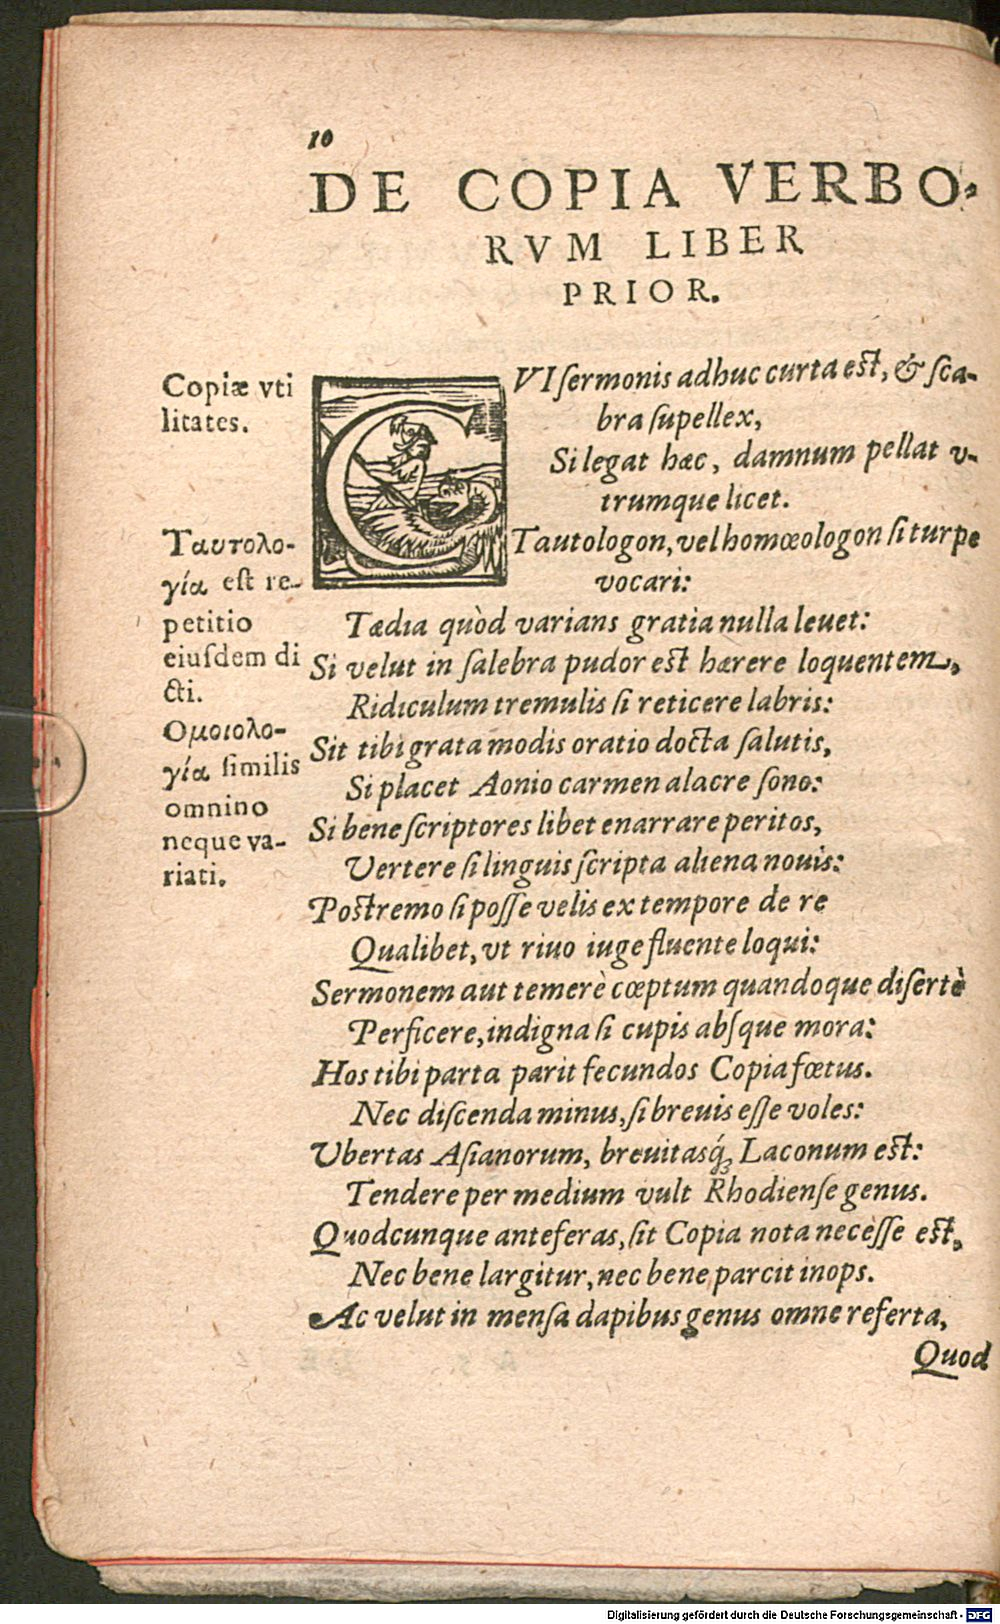 10
DE COPIA VERBO-
RVM LIBER
PRIOR.
Copiæ vti
litates.
Ταυτολο-
γία est re-
petitio
eiuſdem di
cti.
Ομοιολο-
γία ſimilis
omnino
neque va-
riati.
CVI ſermonis adhuc curta est, & ſca-
bra ſupellex,
Si legat hæc, damnum pellat v-
trumque licet.
Tautologon, vel homœologon ſi turpe
vocari:
Tædia quòd varians gratia nulla leuet:
Si velut in ſalebra pudor est hærere loquentem,
Ridiculum tremulis ſi reticere labris:
Sit tibi grata modis oratio docta ſalutis,
Si placet Aonio carmen alacre ſono:
Si bene ſcriptores libet enarrare peritos,
Vertere ſi linguis ſcripta aliena nouis:
Postremo ſi poſſe velis ex tempore de re
Qualibet, vt riuo iuge fluente loqui:
Sermonem aut temerè cœptum quandoque diſertè
Perficere, indigna ſi cupis abſque mora:
Hos tibi parta parit fecundos Copia fœtus.
Nec diſcenda minus, ſi breuis eſſe voles:
Vbertas Aſianorum, breuitasq́; Laconum est:
Tendere per medium vult Rhodienſe genus.
Quodcunque anteferas, ſit Copia nota neceſſe est,
Nec bene largitur, nec bene parcit inops.
Ac velut in menſa dapibus genus omne referta,
Quod
Digitalisierung gefördert durch die Deutsche Forschungsgemeinschaft - DFG